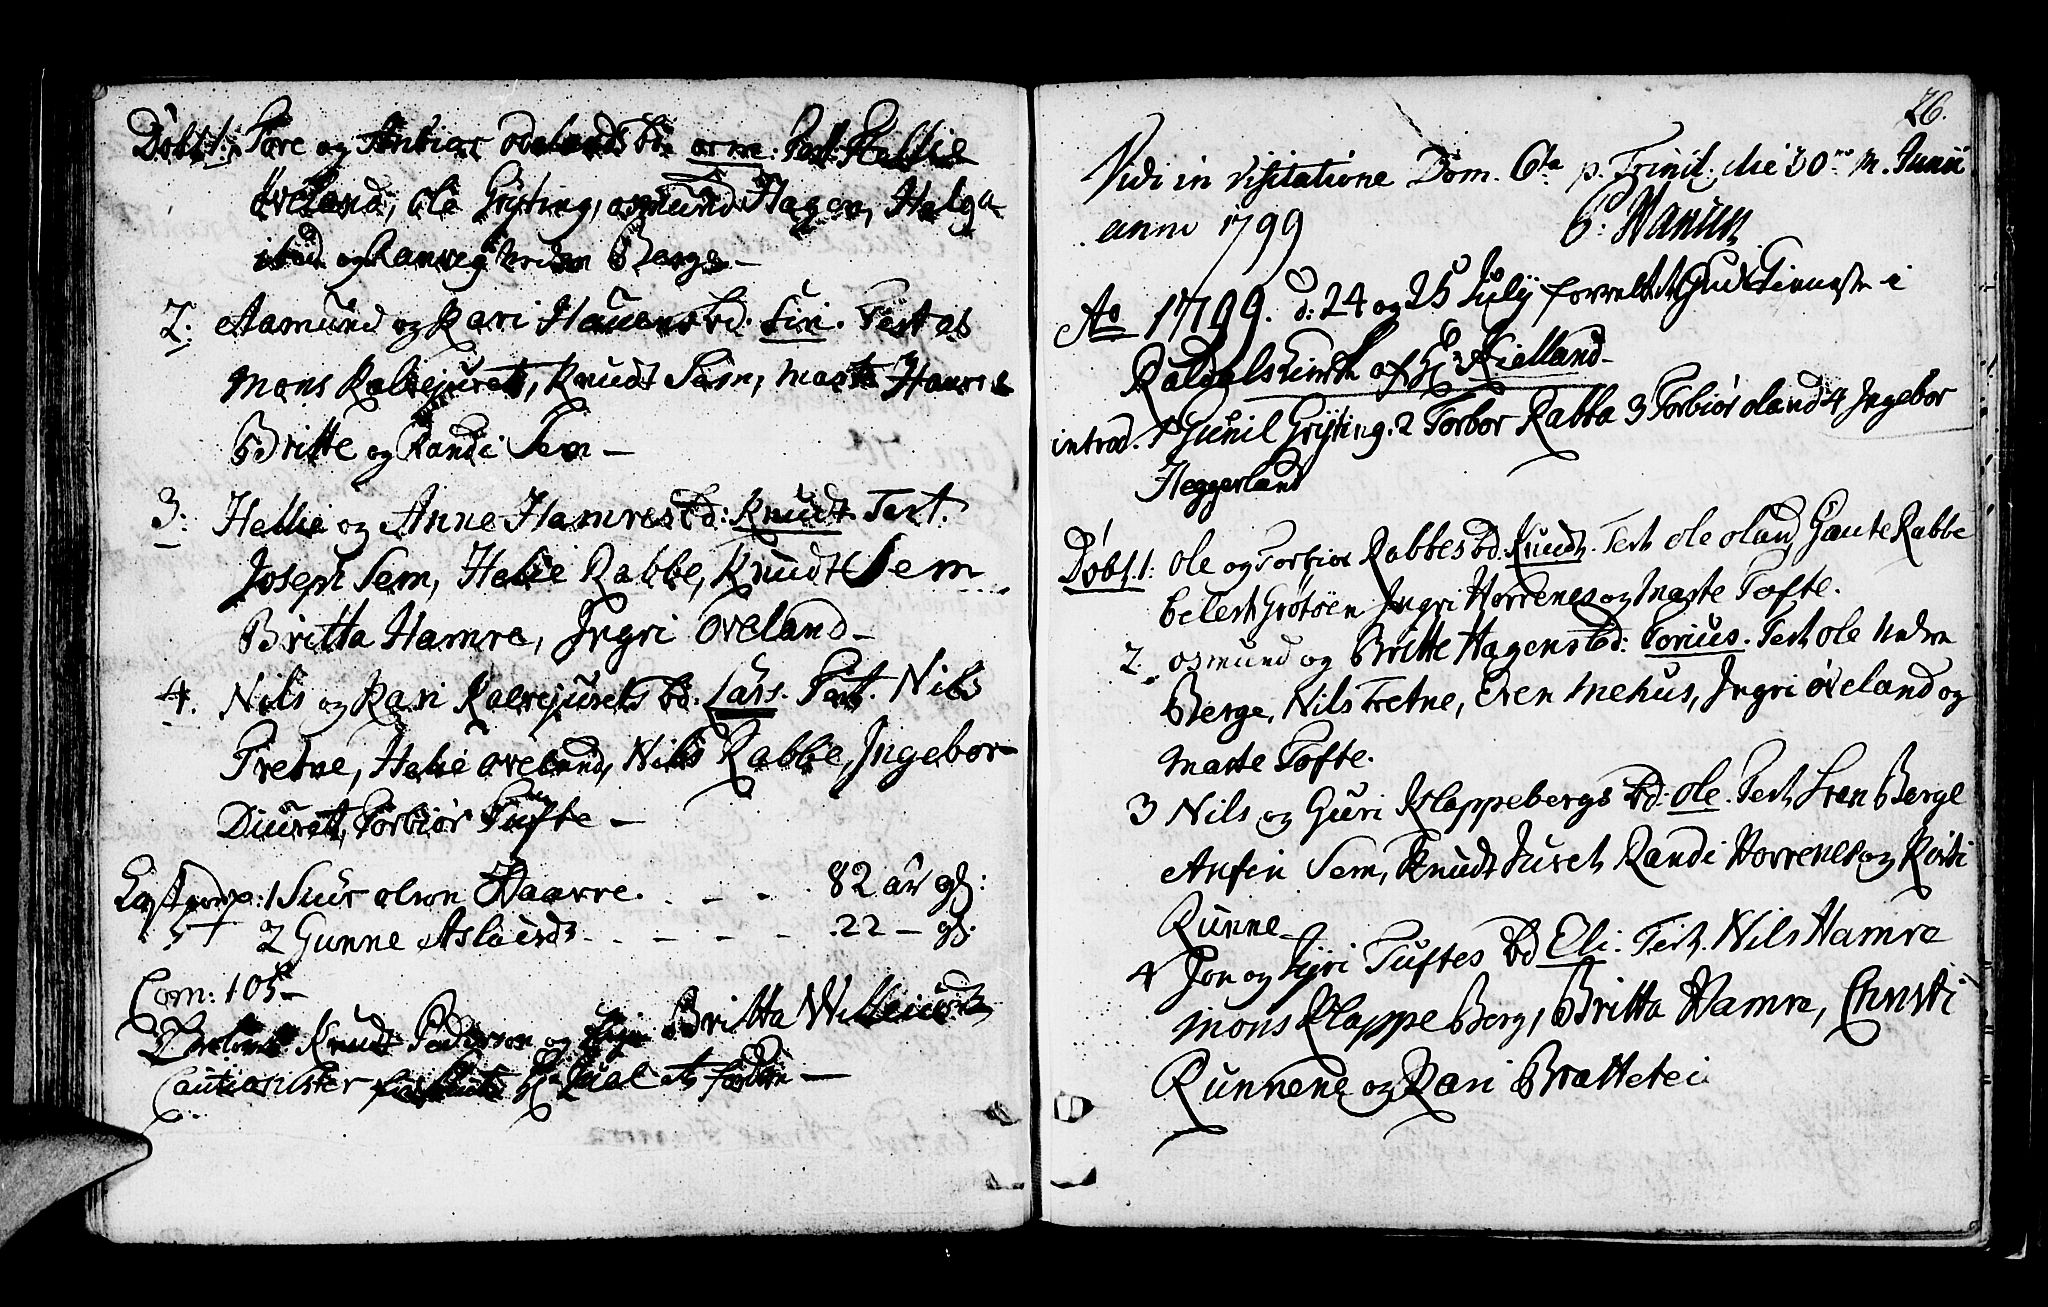 Døbt 1. Tore og Anbiør Ødelands bd. Arne. Test. Hellie
Øveland, Ole Gryting, Osmund Hagen, Helga
og Ranveig Nedre Berge —
2. Aamund og Kari Hauens bd. Siri. Testes
Mons Kalvejuret, Knudt Sem, Marte Hamre
Britte og Randi Sem —
3. Hellie og Anne Hamres bd: Knudt. Test.
Joseph Sem, Helie Rabbe, Knudt Sem
Britta Hamre, Ingri Øveland —
4. Nils og Kari Kalvejurets bd. Lars. Test. Nils
Tretne, Helie Øveland, Nils Rabbe, Ingebor
Diuret, Torbiør Tufte —
1 Siur Olson Haavre. . - - . 82 år gl:
2 Gunne Aslaugds . . - - - . 22 — gl:
Com: 105 —
Knudt Pederson og Britta
Cautionister
26.
Vidi in visitatione Dom. 6ta p. Trinit. die 30 m. Junii
anno 1799
Ao 1799. d: 24 og 25 July forrettet Gudstienesten i
Røldals Kirke af Hr Kielland —
introd. 1 Gunil Gryting. 2 Torbor Rabba 3 Torbiør Oland 4 Ingebor
Heggerland
Døbt. 1: Ole og Torbiør Rabbes bd. Knudt. Test. Ole Oland, Gaute Rabbe
Celest Grøtøen Ingri Horrenes og Marte Tofte.
2. Osmund og Britte Hagens bd: Torius. Test. Ole Nedre
Berge, Nils Tretne, Even Mehus, Ingri Øveland og
Marte Tofte.
3 Nils og Guri Klappebergs bd: Ole. Test. Sven Berge
Anfin Sem, Knudt Juret, Randi Horrenes og Kirsti
Runne —
4 Jon og Siri Tuftes bd Eli. Test. Nils Hamre
Mons Klappe Berg, Britta Hamre, Christi
Runnene og Kari Brattetei